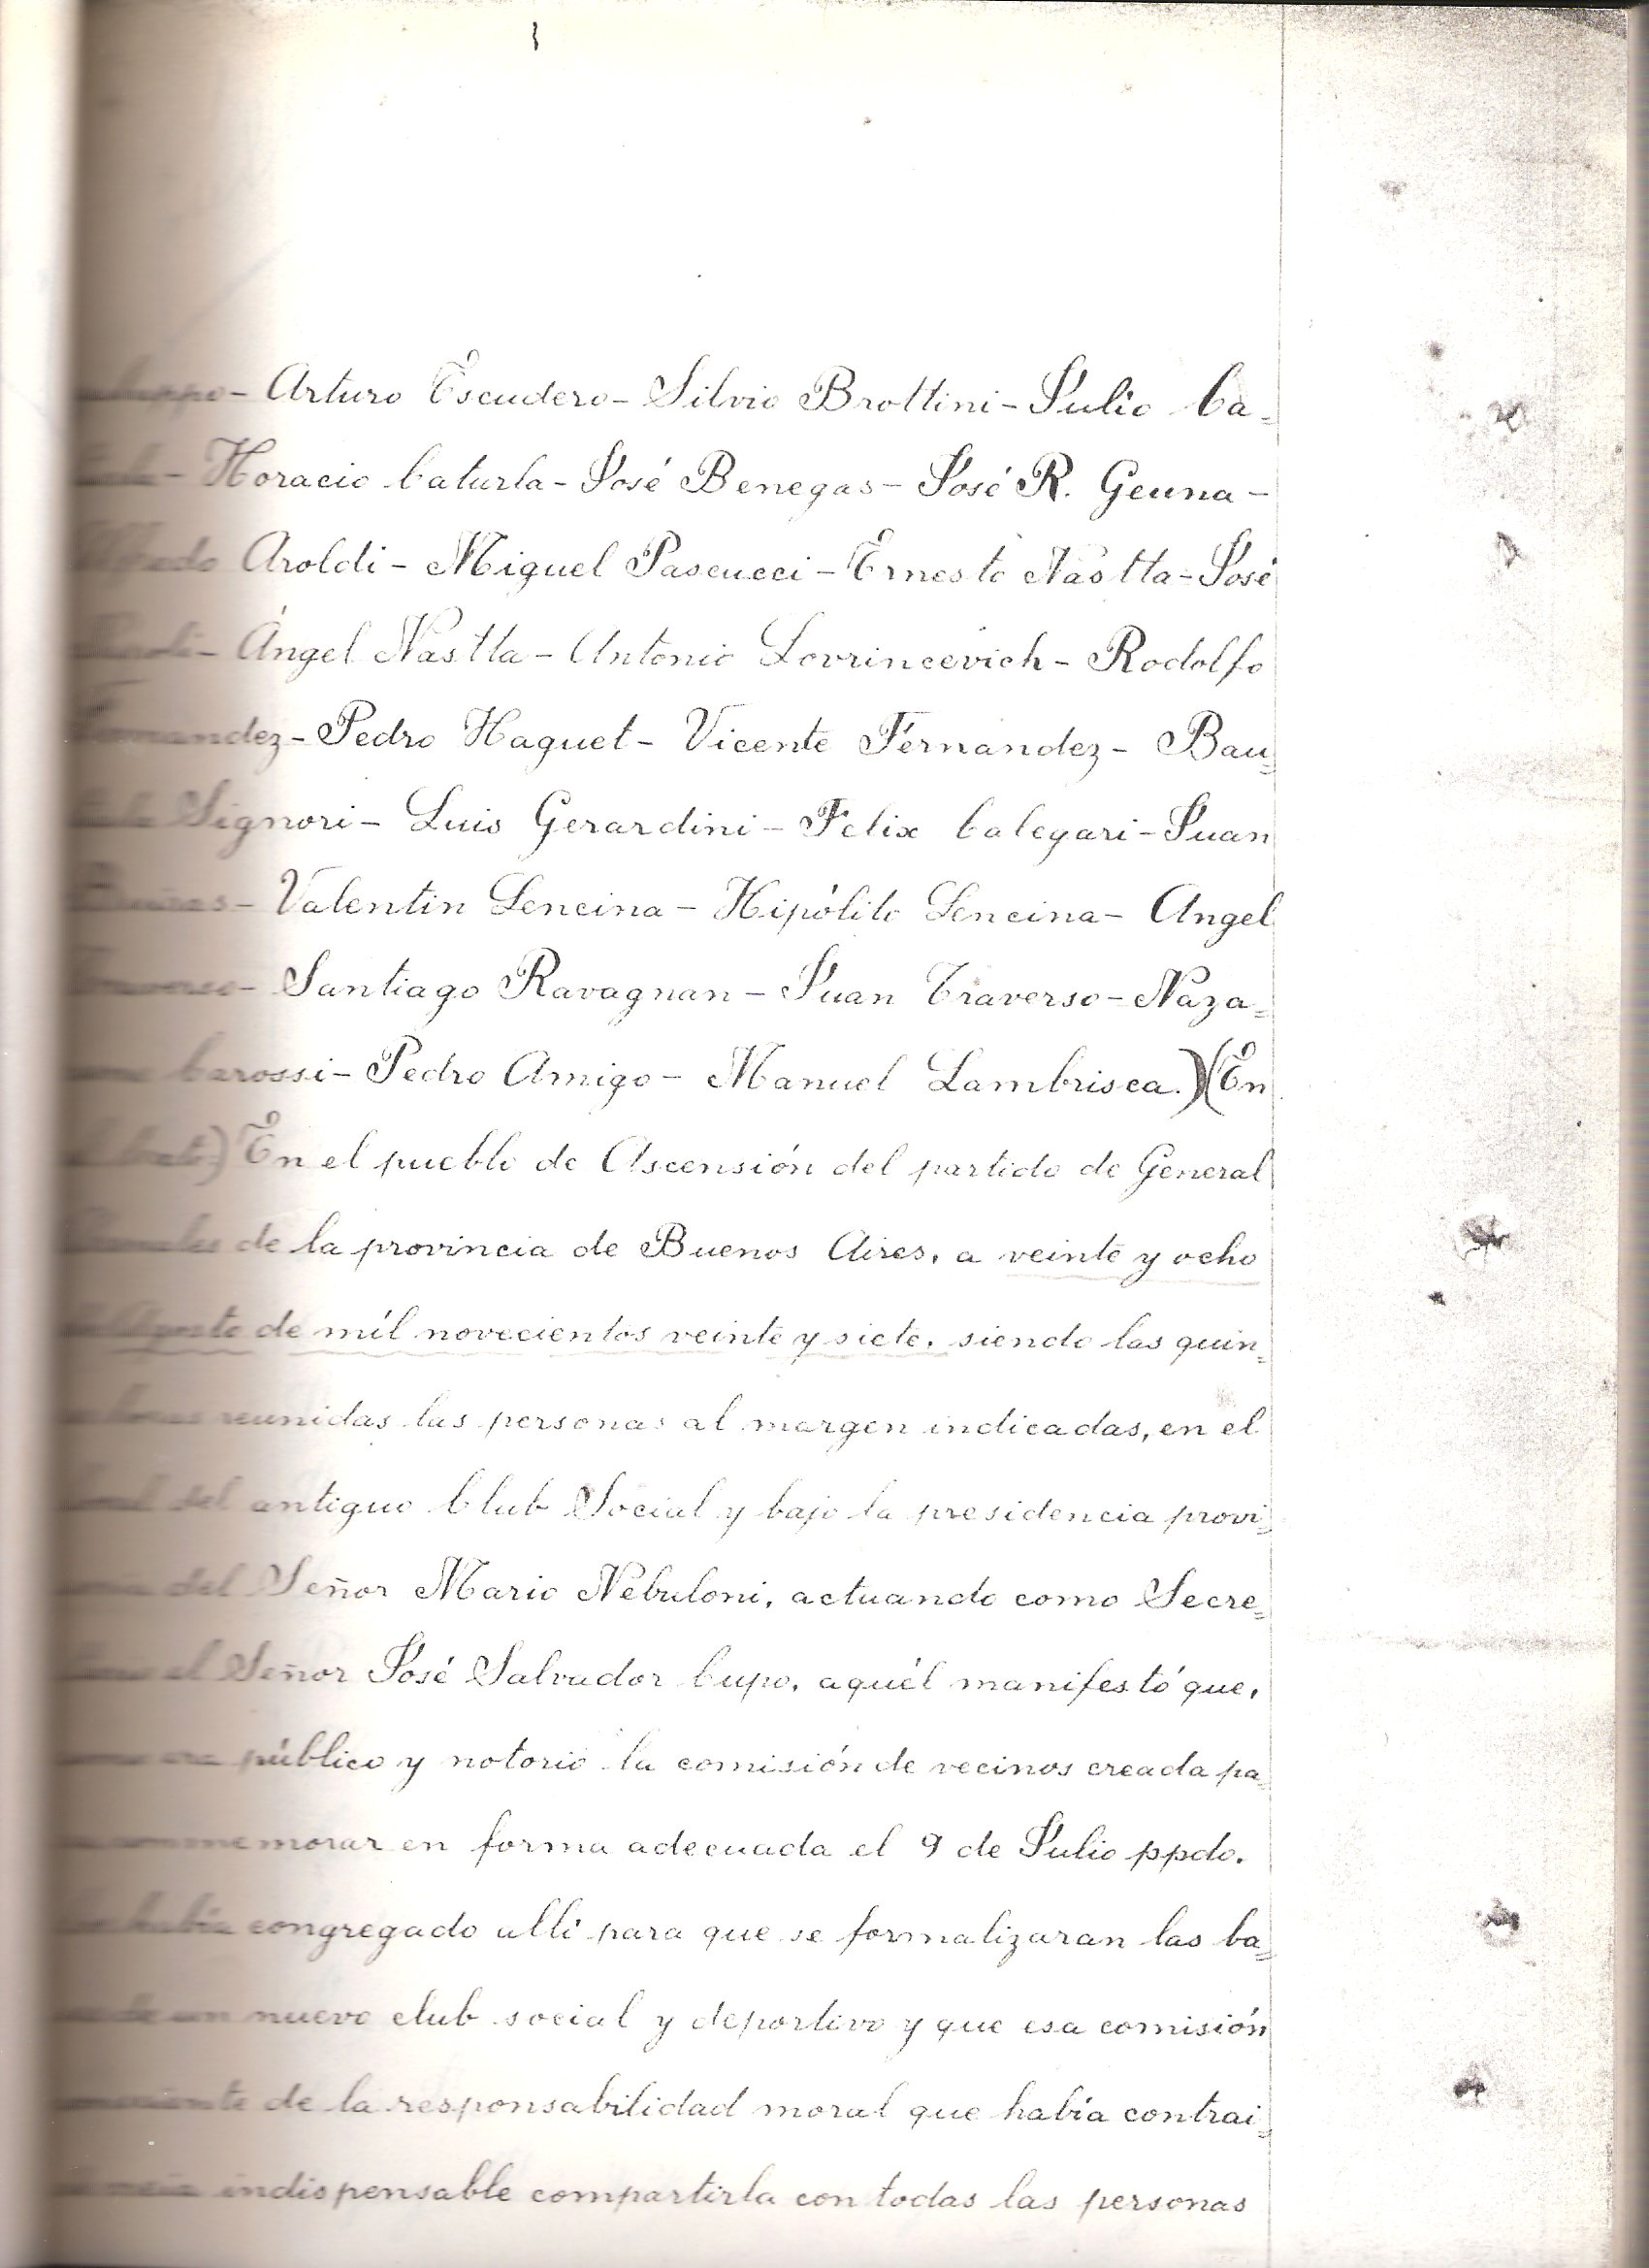 - Arturo Escudero - Silvio Brottini - Julio Ca=
- Horacio Caturla - José Benegas - José R. Geuna -
Aroldi - Miguel Pascucci - Ernesto Nastta - José
- Ángel Nastta - Antonio Lovrincevich - Rodolfo
Fernandez - Pedro Haguet - Vicente Fernandez - Bau=
Signori - Luis Gerardini - Felix Calegari - Juan
- Valentin Lencina - Hipólito Lencina - Angel
Traverso - Santiago Ravagnan - Juan Traverso - Naza=
Carossi - Pedro Amigo - Manuel Lambrisca.) (En
) En el pueblo de Ascensión del partido de General
de la provincia de Buenos Aires, a veinte y ocho
de Agosto de mil novecientos veinte y siete, siendo las quin=
reunidas las personas al margen indicadas, en el
local del antiguo Club Social y bajo la presidencia provi=
del Señor Mario Nebuloni, actuando como Secre=
el Señor José Salvador Cupo, aquél manifestó que,
como era público y notorio la comisión de vecinos creada pa=
conmemorar en forma adecuada el 9 de Julio ppdo.
había congregado allí para que se formalizaran las ba=
de un nuevo club social y deportivo y que esa comisión
de la responsabilidad moral que había contrai=
indispensable compartirla con todas las personas